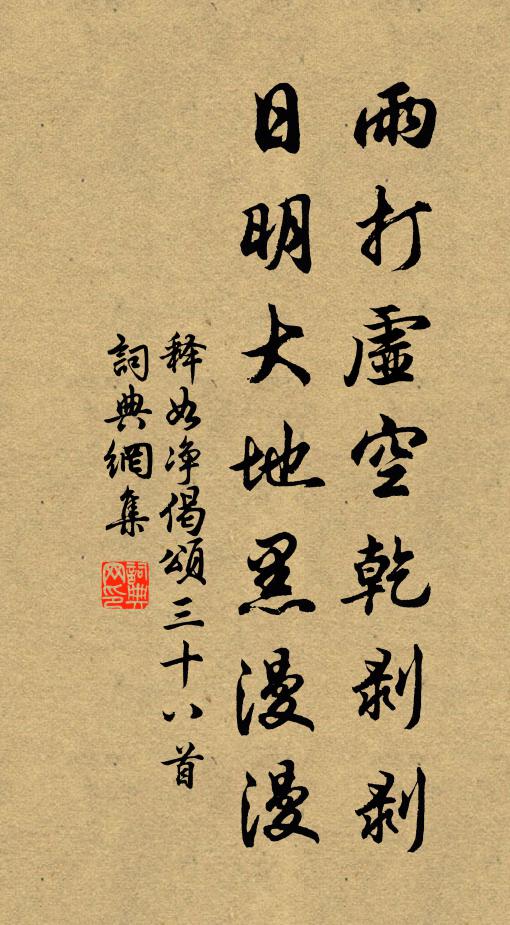 雨打虛空乾剥剥
日明大地黑漫漫
释如净偈頌三十八首
詞典網集
詞典网印